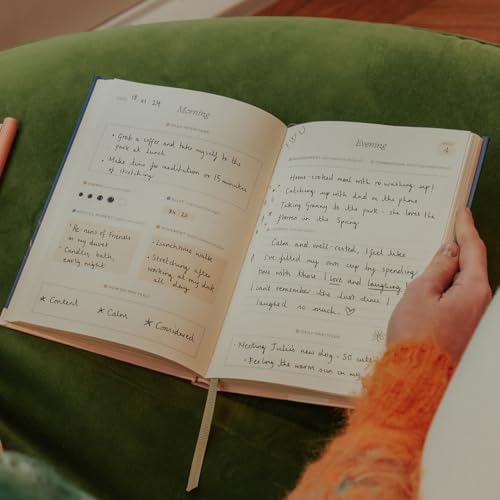 18 01 24
Morning
• Grab a coffee and take myself to the
park at lunch.
• Make time for meditation or 15 minutes
of stretching.
Re-runs of Friends
in my duvet
• Candles, bath,
early night
• Lunchtime walk
• Stretching after
working at my desk
all day.
★ Content
★ Calm
★ Considered
I ♡ U
Evening
Home-cooked meal with no washing up!
Catching up with dad on the phone
Taking Granny to the park - she loves the
flowers in the Spring.
Calm and well-rested, I feel like
I've filled my own cup by spending
time with those I love and laughing.
I can't remember the last time I
laughed so much. ♡
• Meeting Julie's new dog - SO cute
• Feeling the warm sun on my